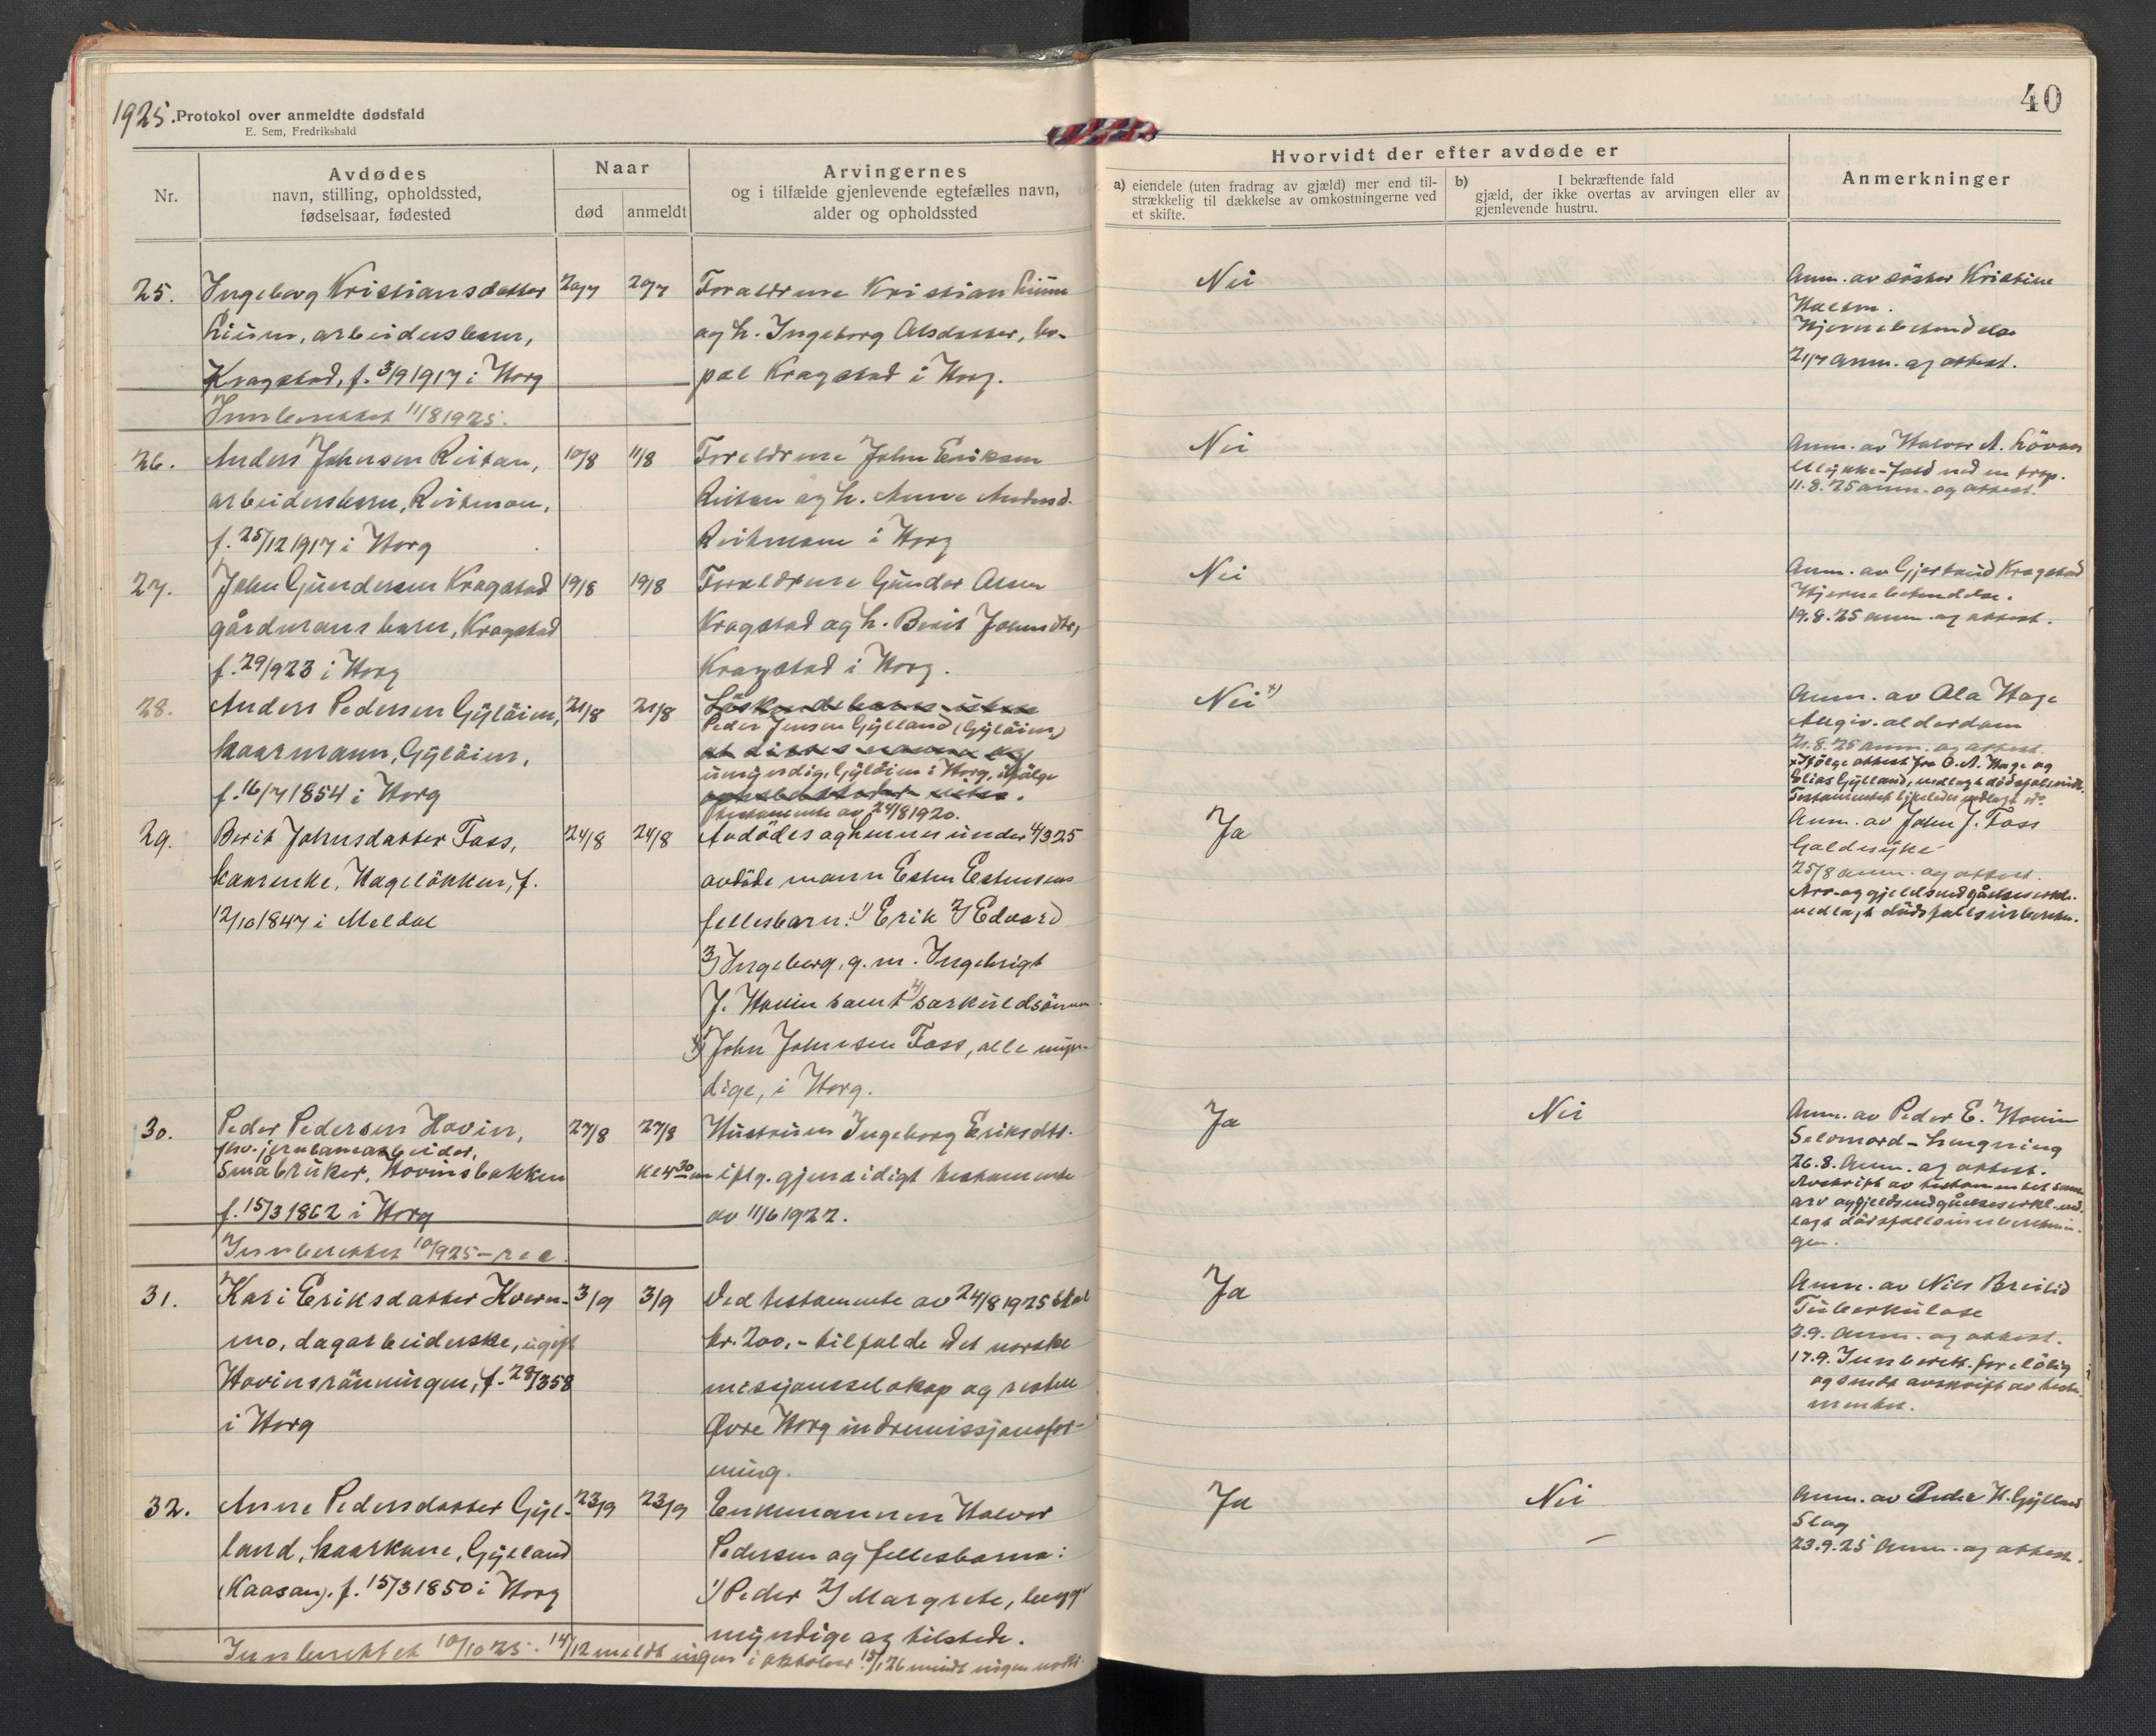 1925. Protokol over anmeldte dødsfald
E. Sem, Fredrikshald
40
Nr.
Avdødes
navn, stilling, opholdssted,
fødselsaar, fødested
Naar
død
anmeldt
Arvingernes
og i tilfælde gjenlevende egtefælles navn,
alder og opholdssted
Hvorvidt der efter avdøde er
a) eiendele (uten fradrag av gjæld) mer end til-
strækkelig til dækkelse av omkostningerne ved
et skifte.
b) I bekræftende fald
gjæld, der ikke overtas av arvingen eller av
gjenlevende hustru.
Anmerkninger
25.
Ingeborg Kristiansdatter
Liium, arbeidersbarn,
Kragstad, f. 3/9 1917 i Horg
20/7
20/7
Foraldrene Kristian Liium
og h. Ingeborg Olsdatter, bo-
pæl Kragstad i Horg.
Nei
Anm. av söster Kristine
Hjernebetendelse
21/7 anm. og attest.
Innberettet 11/8 1925.
26.
Anders Johnsen Reitan,
arbeidersbarn, Reitmoen,
f. 25/12 1917 i Horg
10/8
11/8
Foreldrene John Eriksen
Reitan og h. Anne Andersd.
Reitmoen i Horg
Nei
Anm. av Halvor A. Lövaas
Ulykke-fald ned en trap.
11.8.25 anm. og attest.
27.
John Gundersen Kragstad
gårdmans barn, Kragstad
f. 29/923 i Horg
19/8
19/8
Foreldrene Gunder Olsen
Kragstad og h. Berit Johnsdtr,
Kragstad i Horg.
Nei
Anm. av Gjertrud Kragstad
Hjernebetendelse.
19.8.25 anm. og attest.
28.
Anders Pedersen Gylöien,
kaarmann, Gylöien,
f. 16/7 1854 i Horg
21/8
21/8
Söskendebarn uten
Peder Jensen Gylland (Gylöien)
at dittes navne og
umyndig, Gylöien i Horg, ifölge
opholdssteder vites.
testamente av 24/8 1920.
Nei x)
Anm. av Ola Hage
Angiv. alderdom
21.8.25 anm. og attest.
x) Ifölge attest fra O. A. Hage og
Elias Gylland, vedlagt dödsfalsmeld.
Testamentet likeledes vedlagt do.
29.
Berit Johnsdatter Foss,
kaarenke, Hagelökken, f.
12/10 1847 i Meldal
24/8
24/8
Avdödes og hennes under 4/3 25
avdöde mann Esten Estensens
fellesbarn: 1) Erik 2) Edvard
3) Ingeborg, g. m. Ingebrigt
J. Hovin samt 4) særkuldsönnen
4) John Johnsen Foss, alle myn-
dige, i Horg.
Ja
Anm. av John J. Foss
Galdesyke
25/8 anm. og attest.
Arv- og gjeldsvedgåelseserkl.
vedlagt dödsfallsinnberetn.
30.
Peder Pedersen Hovin,
fhv. jernbanearbeider,
Småbruker, Hovinsbakken
f. 15/3 1862 i Horg
27/8
27/8
kl 4 30 em
Hustruen Ingeborg Eriksdtr.
iflg. gjensidigt testamente
av 11/6 1922.
Ja
Nei
Anm. av Peder E. Hovin
Selvmord - hengning
26.8. Anm. og attest.
Avskrift av testamentet samt
arv og gjeldsvedgåelseserkl. ved-
lagt dödsfallsinnberetnin-
gen.
Innberettet 10/925 - rec.
31.
Kari Eriksdatter Kvern-
mo, dagarbeiderske, ugift
Hovinsrönningen, f. 28/3 58
i Horg
3/9
3/9
Ved testamente av 24/8 1925 skal
kr. 200,- tilfalde det norske
misjonsselskap og resten
Øvre Horg indremissjonsfor-
ening.
Ja
Anm. av Nils Breilid
Tuberkulose
3.9. Anm. og attest.
17.9. Innberett. foreløbig
og sendt avskrift av testa-
mentet.
32.
Anne Pedersdatter Gyl-
land, kaarkone, Gylland
(Kaasan). f. 15/3 1850 i Horg
23/9
23/9
Enkemannen Halvor
Pedersen og fellesbarna:
1) Peder 2) Margrete, begge
myndige og tilstede.
Ja
Nei
Anm. av Peder H. Gylland
Slag
23.9.25 Anm. og attest.
Innberettet 10/10 25. 14/12 meldt ingen i oktober. 15/1 26 meldt ingen